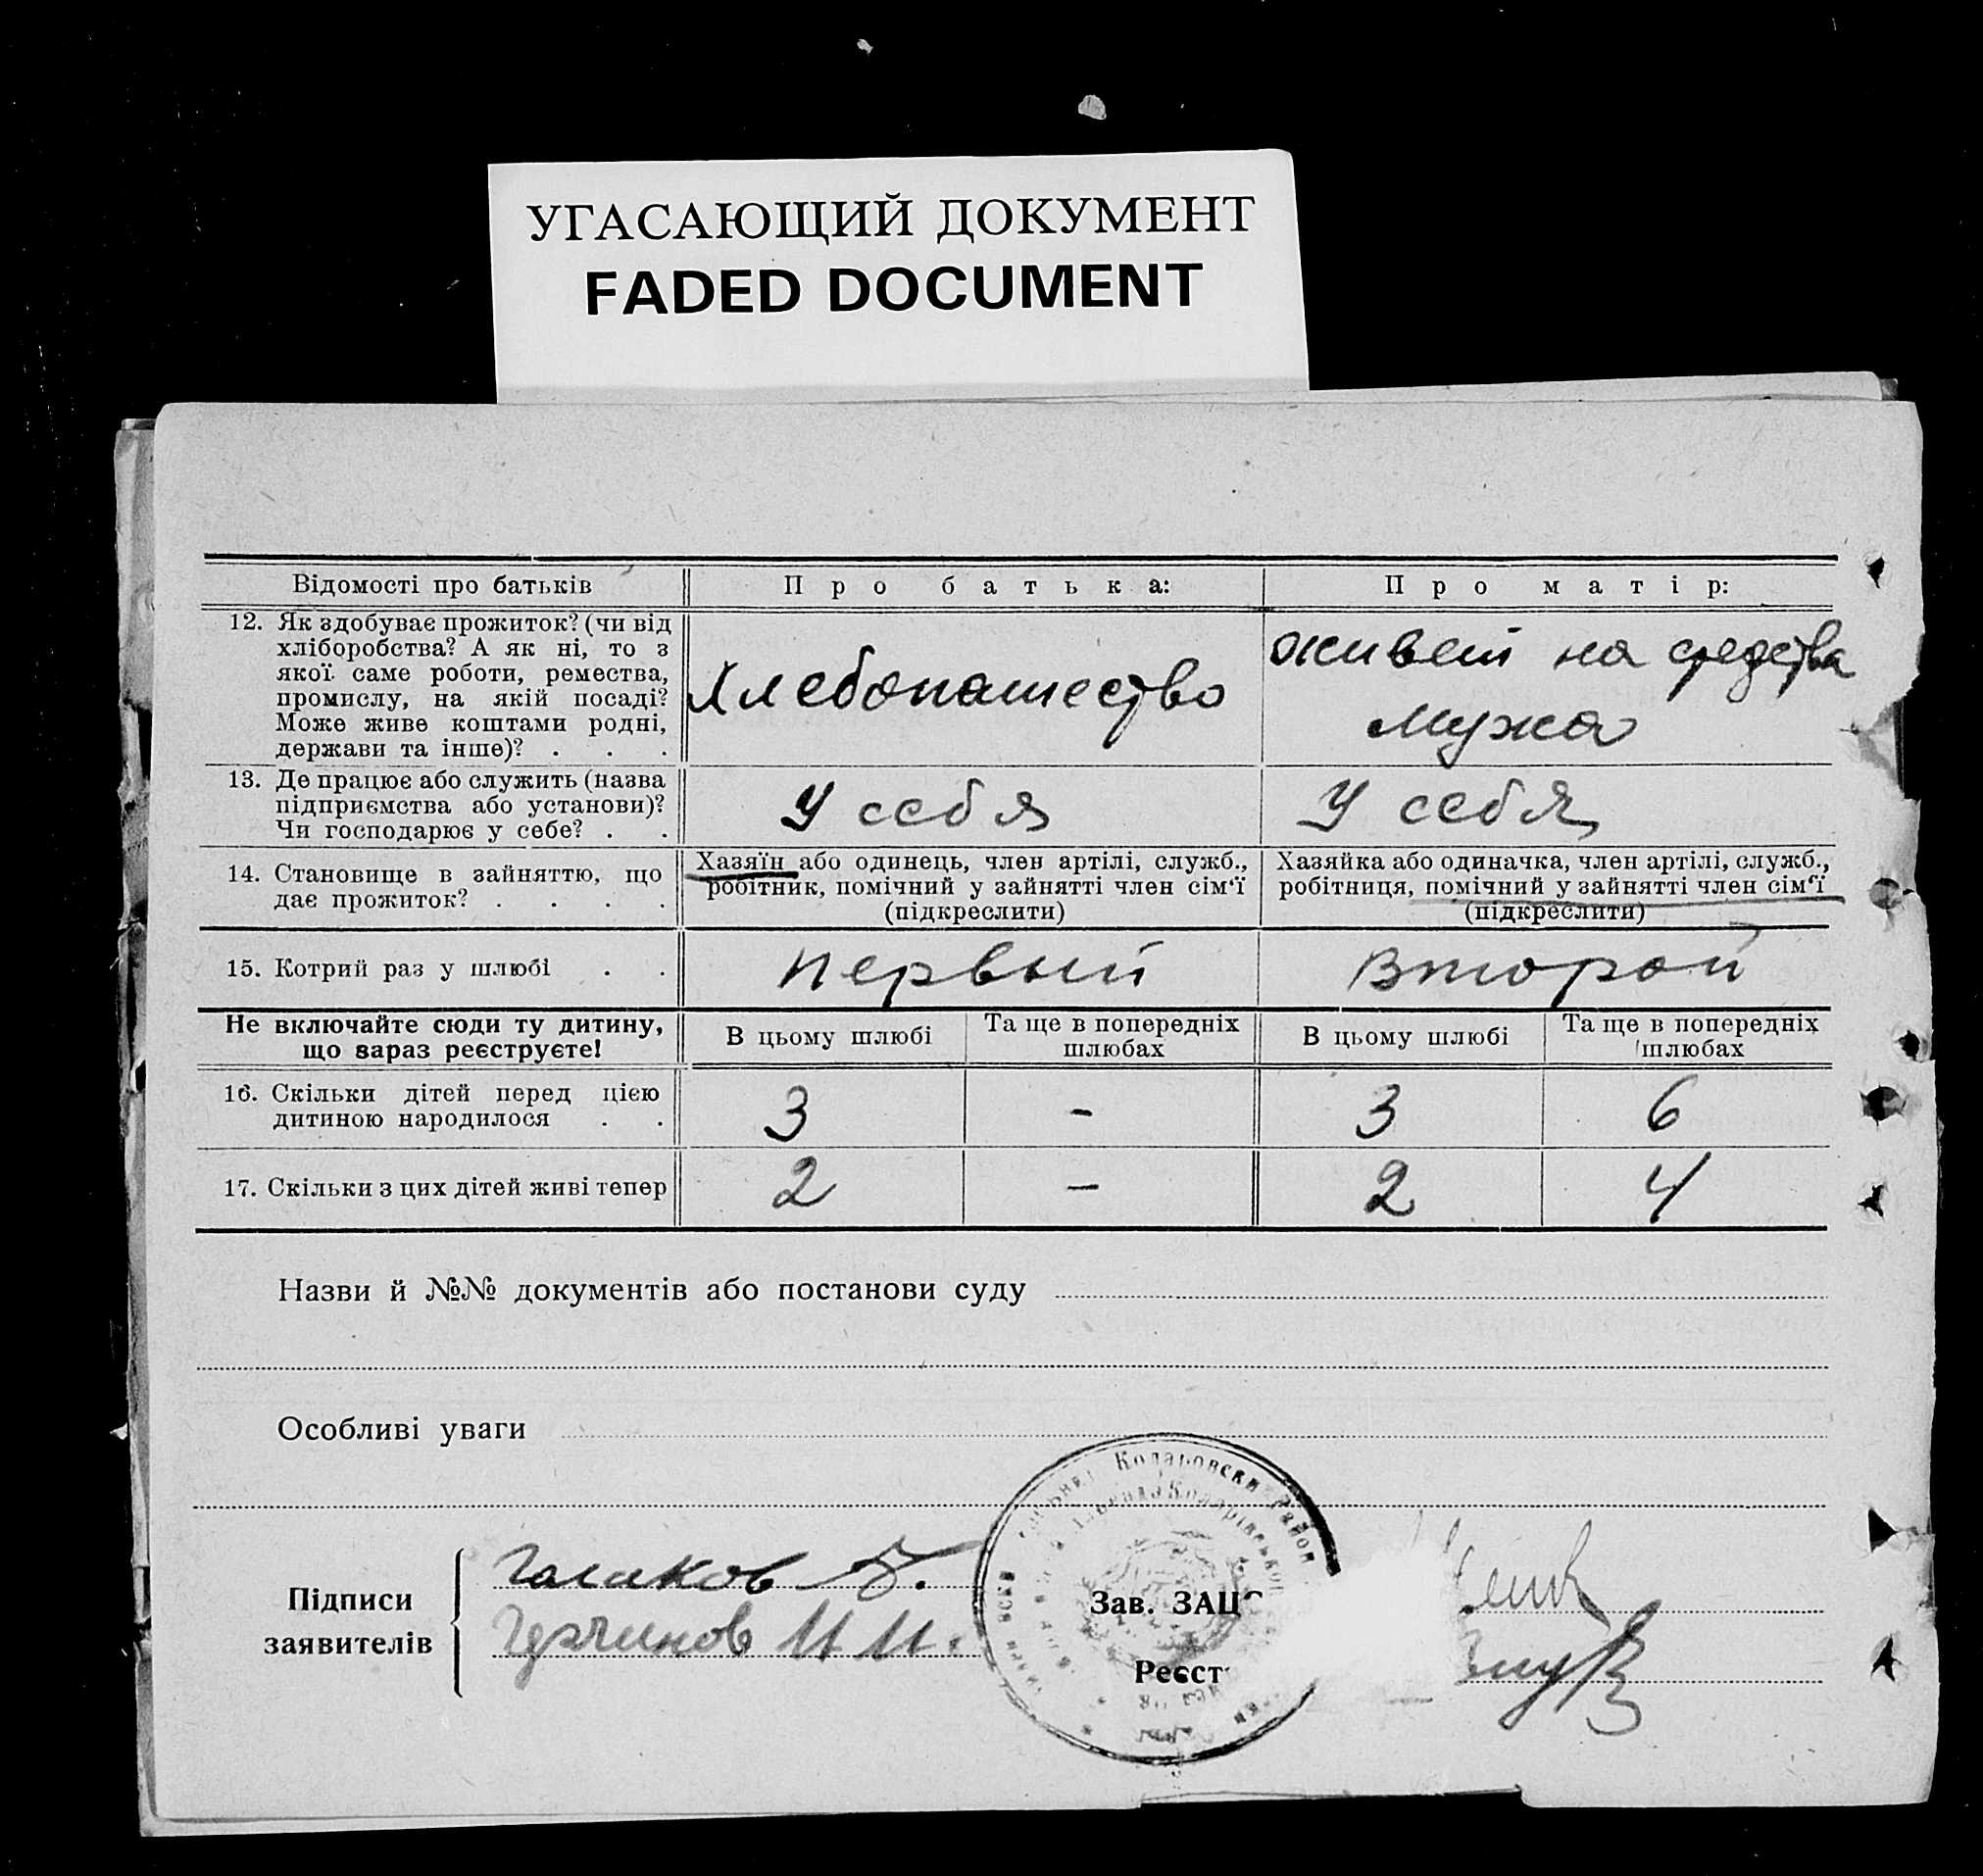 УГАСАЮЩИЙ ДОКУМЕНТ
FADED DOCUMENT
Відомості про батьків
Про батька:
Про матір:
12. Як здобуває прожиток? (чи від
хліборобства? А як ні, то з
якої саме роботи, ремества,
промислу, на якій посаді?
Може живе коштами родні,
держави та інше)? . . .
Хлебопашество
живет на средства
мужа
13. Де працює або служить (назва
підприємства або установи)?
Чи господарює у себе? . .
У себя
У себя
14. Становище в зайняттю, що
дає прожиток? . . . .
Хазяїн або одинець, член артілі, служб.,
робітник, помічний у зайнятті член сім‘ї
(підкреслити)
Хазяйка або одиначка, член артілі, служб.,
робітниця, помічний у зайнятті член сім‘ї
(підкреслити)
15. Котрий раз у шлюбі . .
первый
второй
Не включайте сюди ту дитину,
що зараз реєструєте!
В цьому шлюбі
Та ще в попередніх
шлюбах
В цьому шлюбі
Та ще в попередніх
шлюбах
16. Скільки дітей перед цією
дитиною народилося . .
3
-
3
6
17. Скільки з цих дітей живі тепер
2
-
2
4
Назви й №№ документів або постанови суду
Особливі уваги
Коларовски Район
Підписи
заявителів
И И.
Зав.